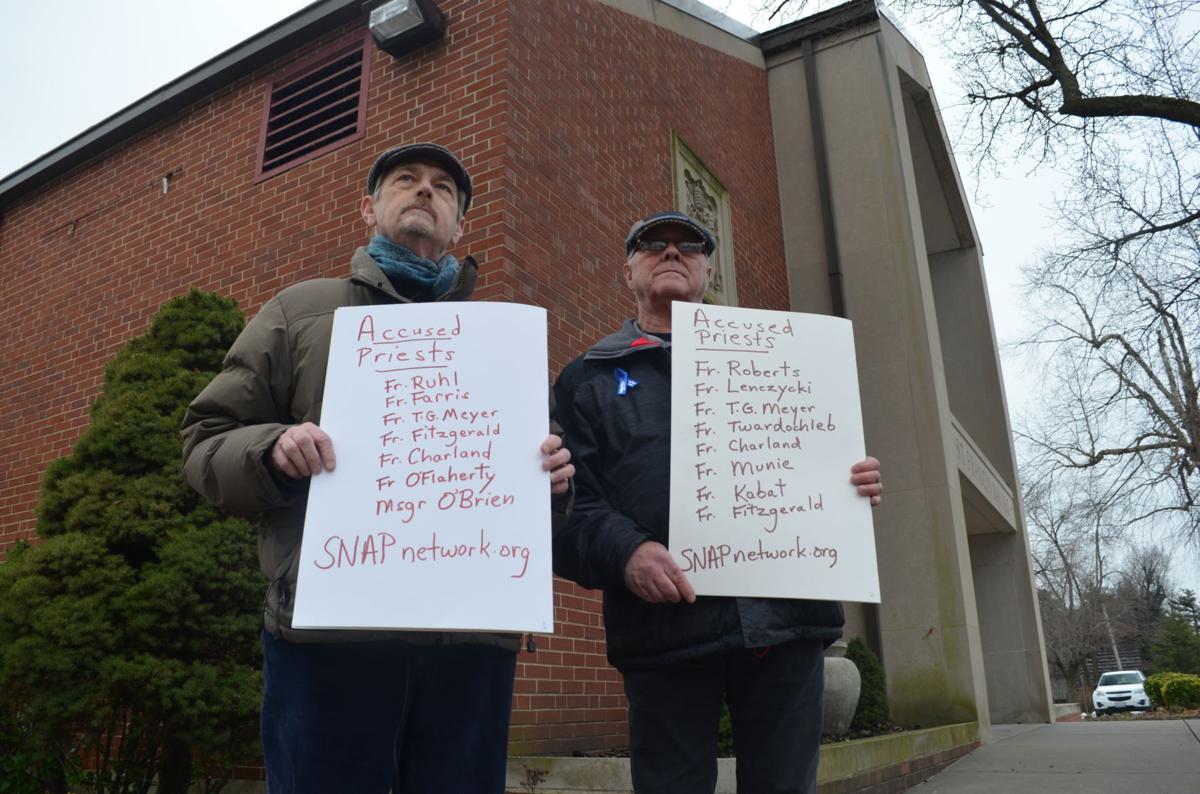 Accused
Priests
Fr. Ruhl
Fr. Farris
Fr. T.G. Meyer
Fr. Fitzgerald
Fr. Charland
Fr O'Flaherty
Msgr O'Brien
SNAPnetwork.org
Accused
Priests
Fr. Roberts
Fr. Lenczycki
Fr. T.G. Meyer
Fr. Twardochleb
Fr. Charland
Fr. Munie
Fr. Kabat
Fr. Fitzgerald
SNAPnetwork.org